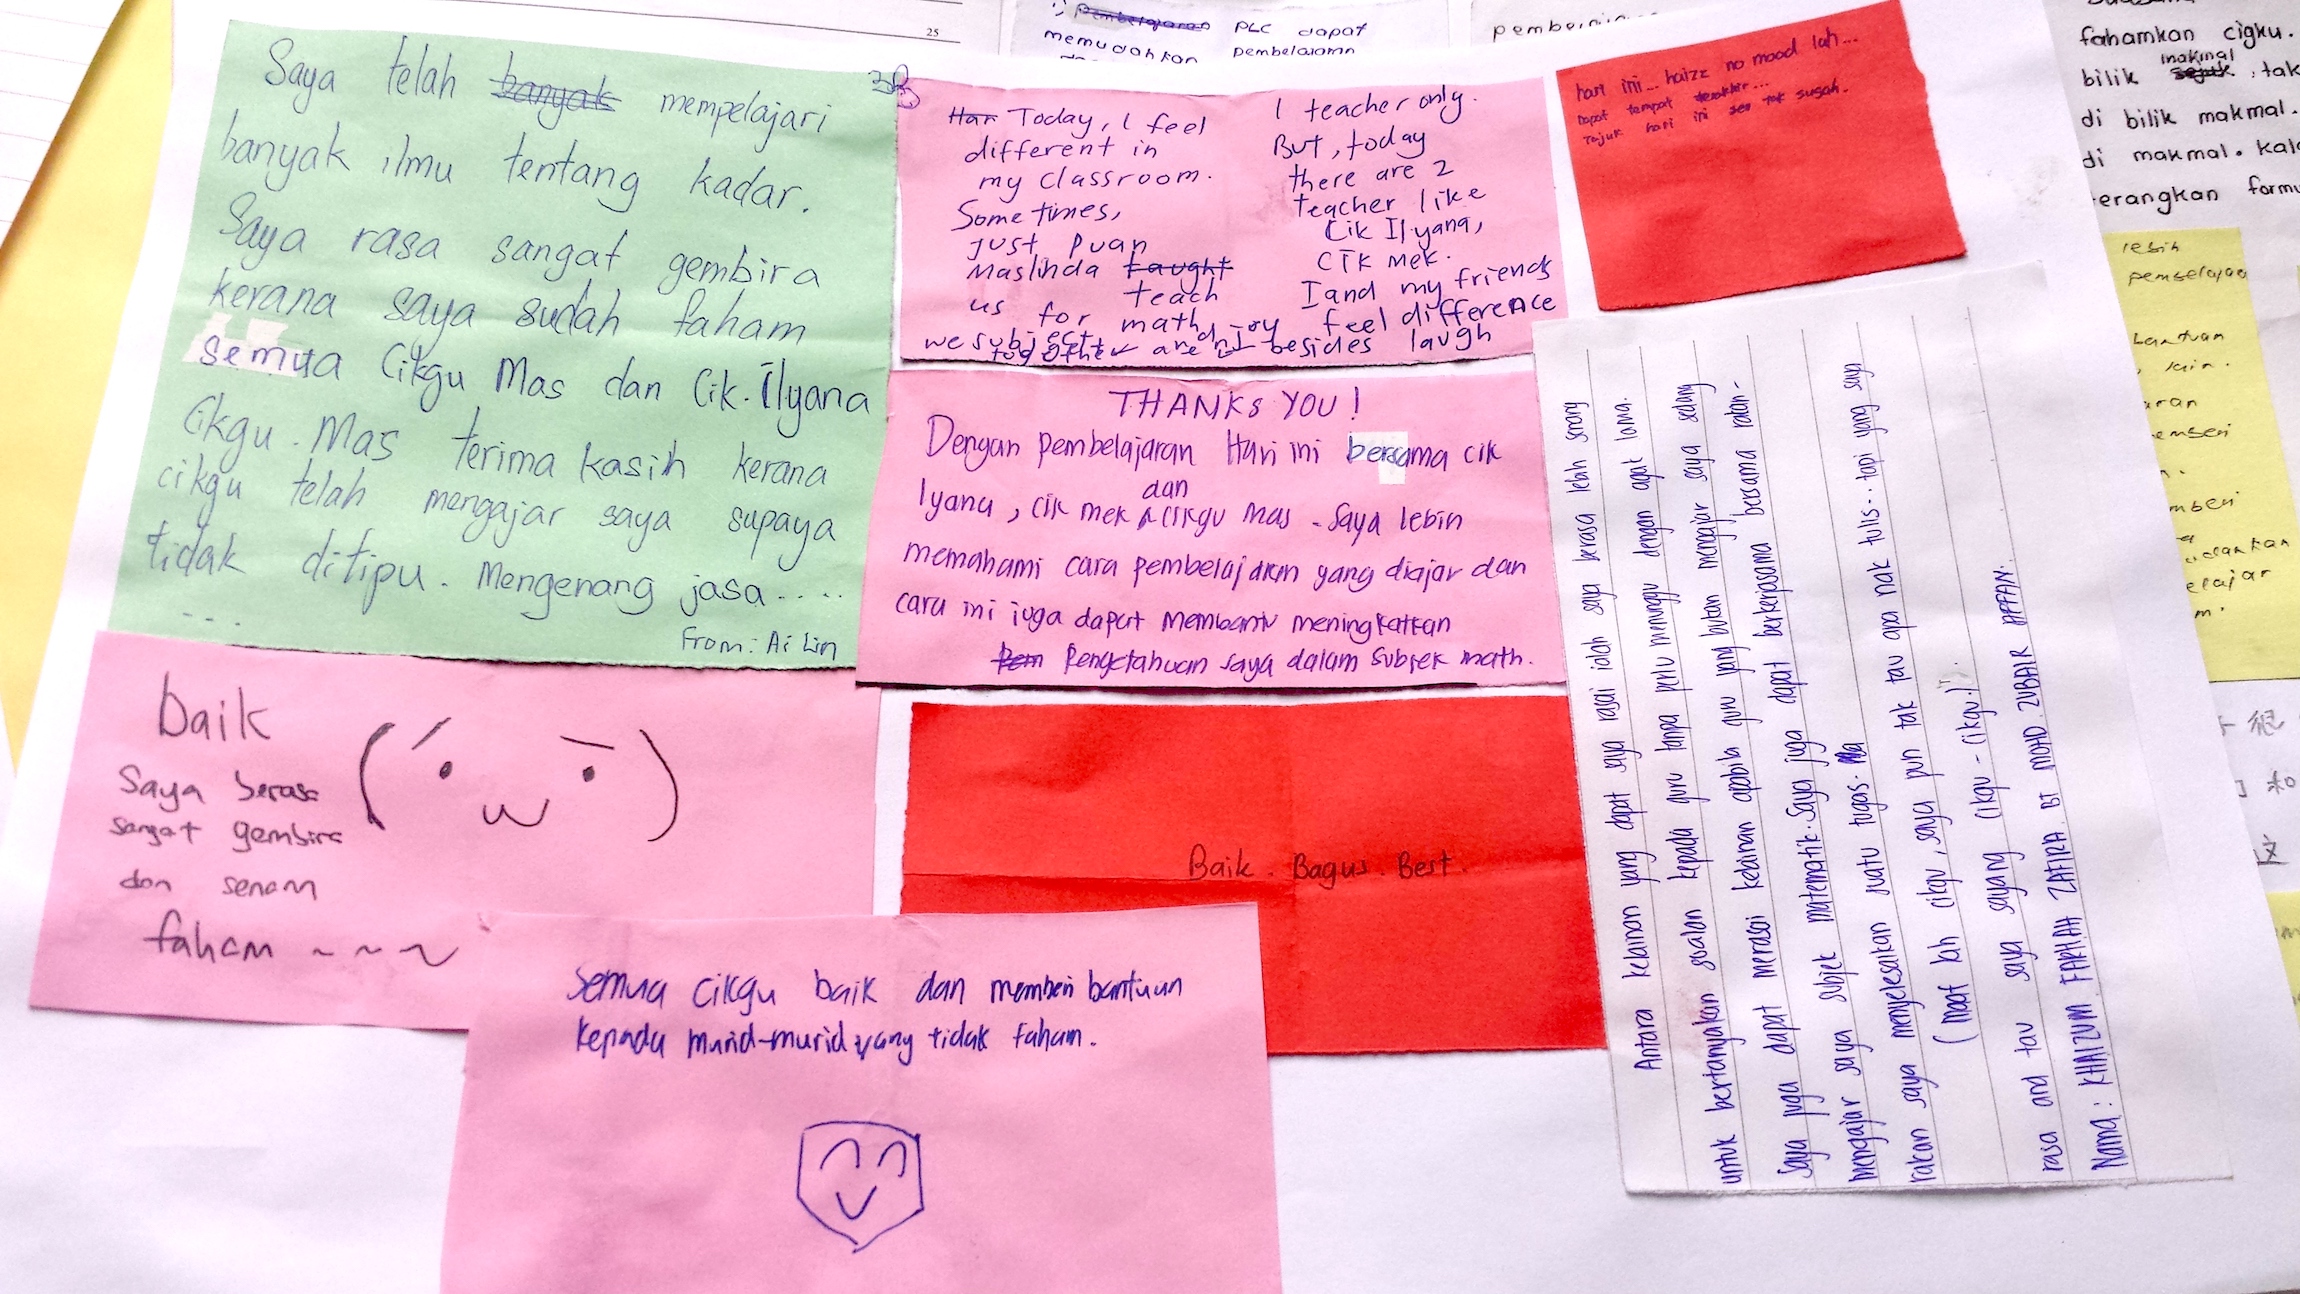 Saya telah banyak mempelajari
banyak ilmu tentang kadar.
Saya rasa sangat gembira
kerana saya sudah faham
semua Cikgu Mas dan Cik. Ilyana
Cikgu. Mas terima kasih kerana
cikgu telah mengajar saya supaya
tidak ditipu. Mengenang jasa....
...
From: Ai Lin
Han Today, I feel
different in
my classroom.
Sometimes,
just Puan
Maslinda taught
teach
us for math
we subject
1 teacher only.
But, today
there are 2
teacher like
Cik Ilyana,
Cik Mek.
I and my friends
feel difference
and besides laugh
hari ini... haizz no mood lah...
Dapat tempat terakhir...
Tajuk hari ini susah.
THANKS YOU!
Dengan pembelajaran Hari ini bersama cik
Iyana, cik mek dan cikgu mas. Saya lebih
memahami cara pembelajaran yang diajar dan
cara ini juga dapat Membantu meningkatkan
Pem Pengetahuan saya dalam subjek math.
baik
Saya berasa
sangat gembira
dan senam
faham ~ ~ ~
Baik. Bagus. Best.
Semua cikgu baik dan memberi bantuan
kepada murid-murid yang tidak faham.
Antara kelainan yang dapat saya rasai ialah saya berasa lebih senang
untuk bertanyakan soalan kepada guru tanpa perlu menunggu dengan agat lama.
Saya juga dapat merasai kelainan apabila guru yang bukan mengajar saya sedang
mengajar saya subjek matematik. Saya juga dapat berkerjasama bersama rakan-
rakan saya menyelesaikan suatu tugas. tapi yang saya
(maaf lah cikgu, saya pun tak tau apa nak tulis..
rasa and tau saya sayang cikgu-cikgu!)
Nama: KHAIZUM FARHAH ZAFIRA BT MOHD. ZUBAIR AFFAN.
25
:) Pembelajaran PLC dapat
memudahkan pembelajaran
fahamkan cigku.
makmal
bilik sejuk, tak
di bilik makmal.
di makmal. kala
erangkan formu
lebih
pembelajaa
antuan
aran
emberi
mberi
elajar
很
和